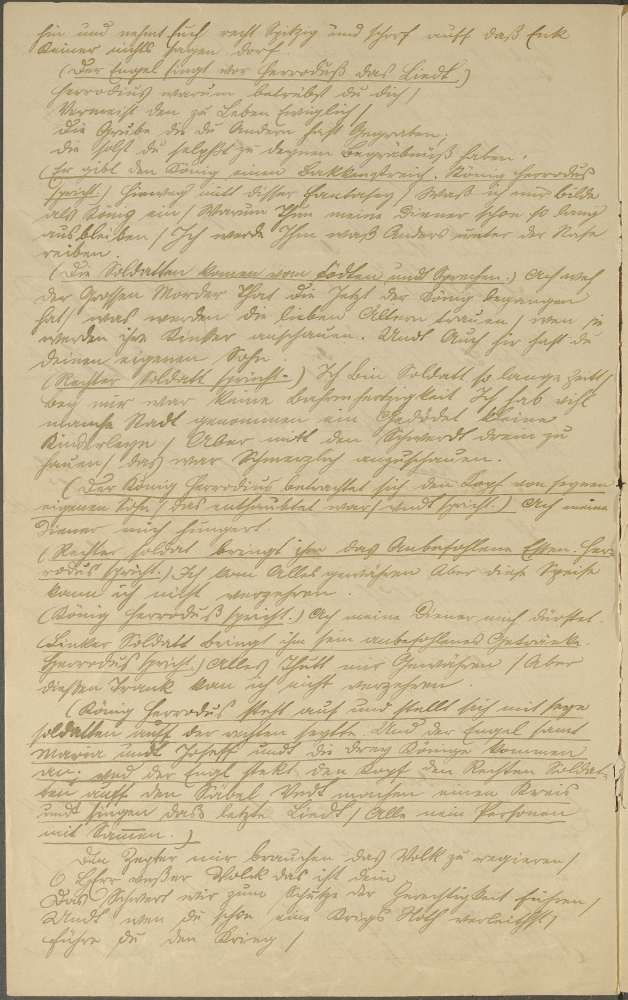 hin und nehmt Euch recht Spitzig und scharf auff daß Euk
Keiner nichts sagen darf
(Der Engel singt vor Herroduß das Liedt.)
Herrodius warum betrübst du dich /
Vermeist den zu Leben Ewiglich /
Die Grube die du Andern hast Gegraben,
Die solst du selbst zu deynen Begräbnuß haben.
(Er gibt den König einen Bakkenstreich. König Herrodus
spricht.) Hinweg mitt disser Fantasey / Waß ich mir bilde
als König ein / Warum Thun meine Diener schon so lang
ausbleiben / Ich werde Ihn waß Anders unter der Nase
reiben.
(Die Soldatten komen vom Födten undt Sprechen.) Ach weh
der Grossen Morder That die Jetzt der König begangen
hat / was werden die lieben Altern trauen / wen sie
werden ihre Kinder anschauen. Undt Auch hir hast du
deinen eigenen Sohn.
(Rechter Soldatt spricht.) Ich bin Soldatt so lange Zeitt /
bey mir war keine Barmhertzigkeit Ich hab vihl
manche Stadt genommen ein Gedödet kleine
Kinderleyn / Aber mitt den Schwerdt drein zu
hauen / das war Schmerzlich anzuschauen.
(Der König Herrodius betrachtet sich den Kopf von seynen
eigenen Sohn / das enthaubtet war / undt spricht.) Ach meine
Diener mich hungert.
(Rechter soldat bringt ihm das Anbefohlene Essen. Her-
rodus spricht.) Ich kan Alles gewehren Aber diese Speise
kann ich nicht verzehren.
(König Herroduß spricht.) Ach meine Diener mich dürstet.
(Linker Soldatt bringt ihm sein anbefohlenes Getränke.
Herrodus spricht.) Alles Thutt mir Gewähren / Aber
diesen Trank kan ich nicht verzehren.
(König Herrodus steht auf und stellt sich mit seye
soldatten auff der rechten seytte. Und der Engel samt
Maria undt Joseff undt die drey Könige kommen
an; und der Engl stekt den Kopf den Rechten Soldat-
ten auff den Säbel Undt machen einen Kreis
undt singen das letzte Liedt / Alle nein Personen
mit Samen.)
Den Zepter wir brauchen das Volk zu regieren /
O HErr unßer Volk das ist dein
Das Schwert wir zum Schutze der Gerechtigkeit führen /
Undt wen du schon eine Kriegs Noth verleihest /
führe du den Krieg /